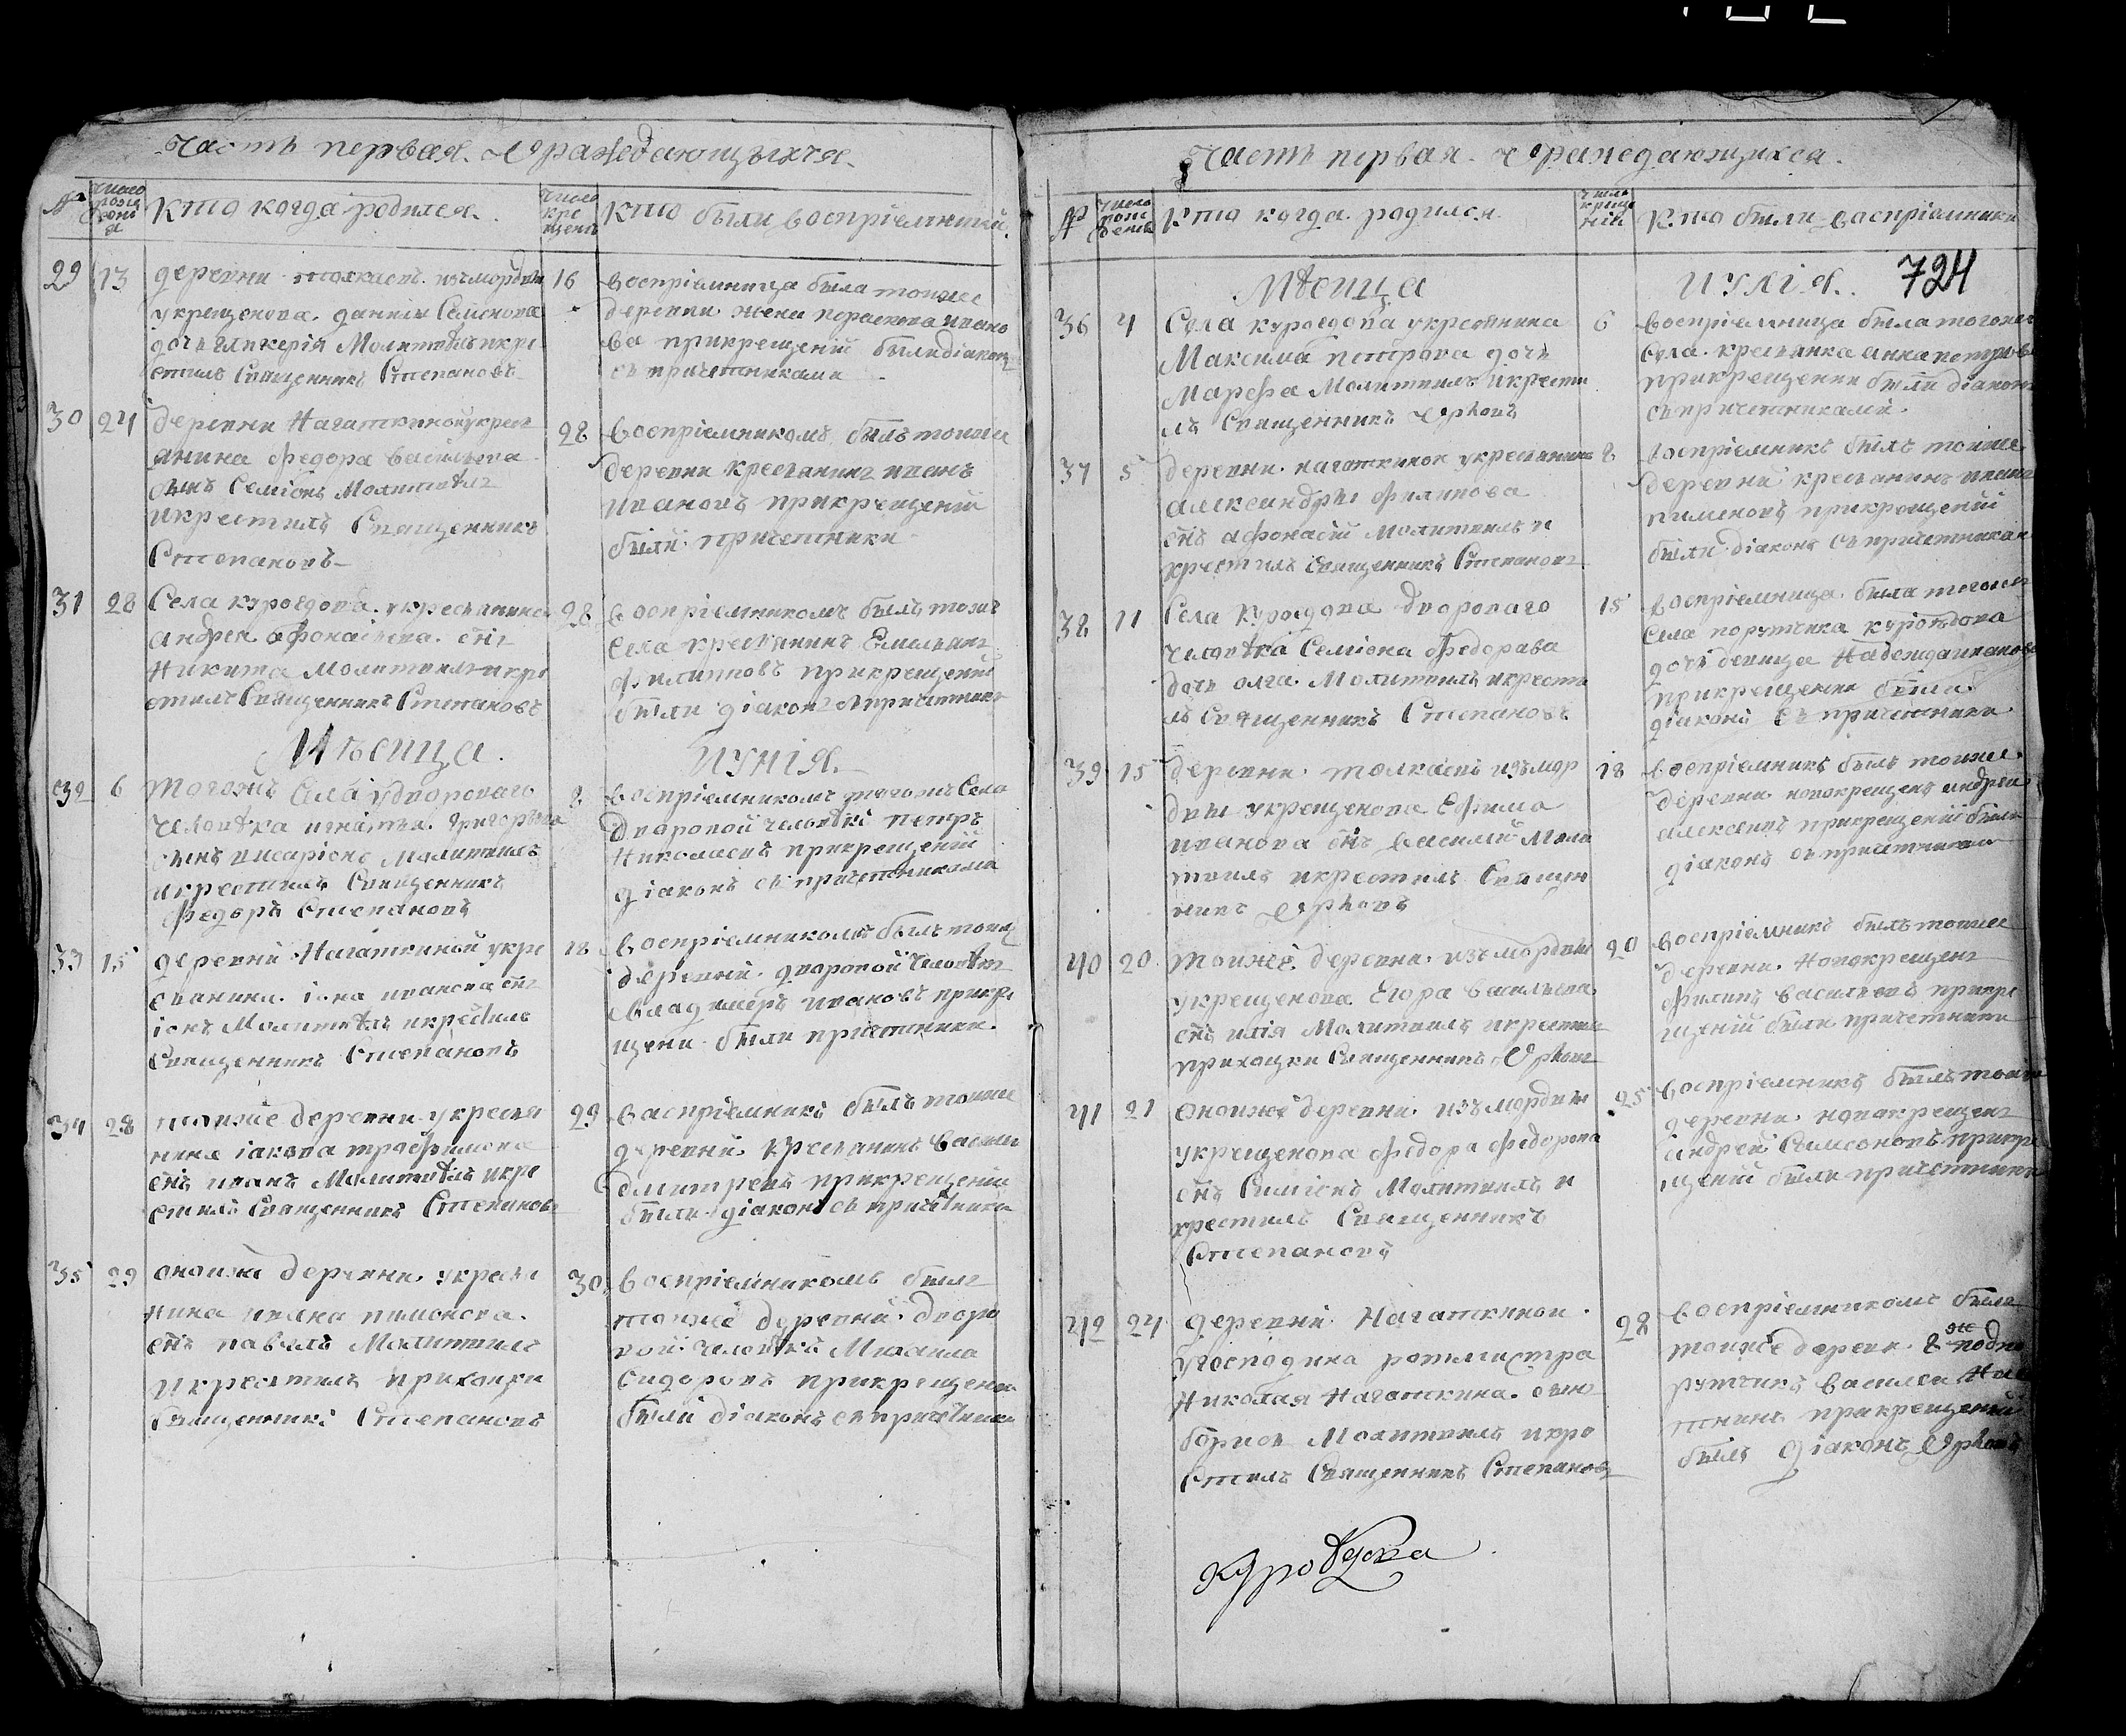 Часть первая. О раждающыхся.
№
число рожденя
Кто когда родился.
число крещенi
Кто были воспрiемники.
29 13
деревни толкаевъ. изъ мордвы
укрещенова. данила Семионова
дочь гликерiя Молитвилъ икре
стилъ Священникъ Степановъ
16
воспрiемница была тоиже
деревни жена пораскова ивано
ва прикрещенiй были дiаконъ
съ причетниками
30 24
деревни Нагаткиной укресть
янина Федора васильева
сынъ Семiонъ Молитвилъ
икрестилъ Священникъ
Степановъ
28
воспрiемникомъ былъ тоиже
деревни крестьянинъ иванъ
ивановъ прикрещенiй
были причетники
31 28
Села куроедова. укрестьянина
андрея афонасьева. снъ
Никита молитвилъ икре
стилъ Священникъ Степановъ
28
воспрiемникомъ былъ тогожъ
Села крестьянинъ Емельянъ
Филиповъ прикрещенiй
были дiаконъ
Мѣсица.
Иунiя.
32 6
тогожъ Села удвороваго
человѣка игнатья. григорьева
сынъ висарiонъ Молитвилъ
икрестилъ Священникъ
Федоръ Степановъ
8
воспрiемникомъ тогожъ Села
дворовой человѣкъ петръ
Николаевъ прикрещенiй
дiаконъ съ причетниками
33 15
деревни Нагаткиной укре
стьянина. iона иванова снъ
iонъ Молитвилъ икрестилъ
Священникъ Степановъ
18
воспрiемникомъ былъ тоиже
деревни. дворовой человѣкъ
владимеръ ивановъ прикре
щени были причетники.
34 28
тоиже деревни укрестья
нина iакова трофимова
снъ иванъ Молитвилъ икре
стилъ Священникъ Степановъ
29
васпрiемникъ былъ тоиже
деревни. крестьянинъ васили
дмитревъ прикрещенiй
были дiаконъ съ причетники
35 29
оноиже деревни. укрестья
нина ивана пимонова.
снъ павелъ Молитвилъ
икрестилъ приходци
Священникъ Степановъ
30
воспрiемникомъ былъ
тоиже деревни. дворо
вой человѣкъ Михаила
Сидоровъ прикрещени
были дiаконъ съ причетники
Часть первая. О ражедающихся.
№
число рожденя
Кто когда. родился.
число крещенiй
Кто были воспрiемники
724
Мѣсица
иулiя.
36 4
Села куроедова укрестьянина
Максима петрова дочь
Марефа Молитвилъ икрести
лъ Священникъ
6
воспрiемница была тогоже
Села. крестьянка анна петрова
прикрещени были дiаконъ
съ причетниками.
37 5
деревни. нагаткинои укрестьянина
александры филипова
снъ афонасiй молитвилъ и
крестилъ Священникъ Степановъ
8
воспрiемникъ былъ тоиже
деревни крестьянинъ иванъ
пимоновъ прикрещенiй
были дiаконъ съ причетникам
38 11
Села Куроедова двороваго
человѣка Семiона Федорава
дочь олга. Молитвилъ икрести
лъ Священникъ Степановъ
15
воспрiемница. была тогоже
Села порутчика куроѣдова
дочь девица Надежда иванова
прикрещени были
дiаконъ съ причетники
39 15
деревни. толкаевъ изъ мор
двы укрещенова Ефима
иванова снъ василiй Моли
твилъ икрестилъ Священ
никъ
18
воспрiемникъ былъ тоиже.
деревни новокрещенъ андреи
алексеевъ прикрещенiй были
дiаконъ съ причетники
40 20
тоиже деревни. изъ мордвы
укрещенова Егора васильева
снъ илiя Молитвилъ икрестилъ
приходцки Священникъ
20
воспрiемникъ былъ тоиже
деревни. Новокрещенъ
филипъ васильевъ прикре
щенiй были причетники
41 21
оноиже деревни. изъ мордвы
укрещенова Федора Федорова
снъ Симiонъ Молитвилъ и
крестилъ Священникъ
Степановъ
25
воспрiемникъ былъ тоиже
деревни новокрещенъ
андрей Симеоновъ прикре
щенiй были причетники
42 24
деревни Нагаткинои.
угосподина ротмистра
Николая Нагаткина. сынъ
борисъ Молитвилъ икре
стилъ Священникъ Степановъ
28
воспрiемникомъ былъ
тоиже деревн.
рутчикъ василеи
прикрещенiй
былъ дiаконъ
куроѣдова